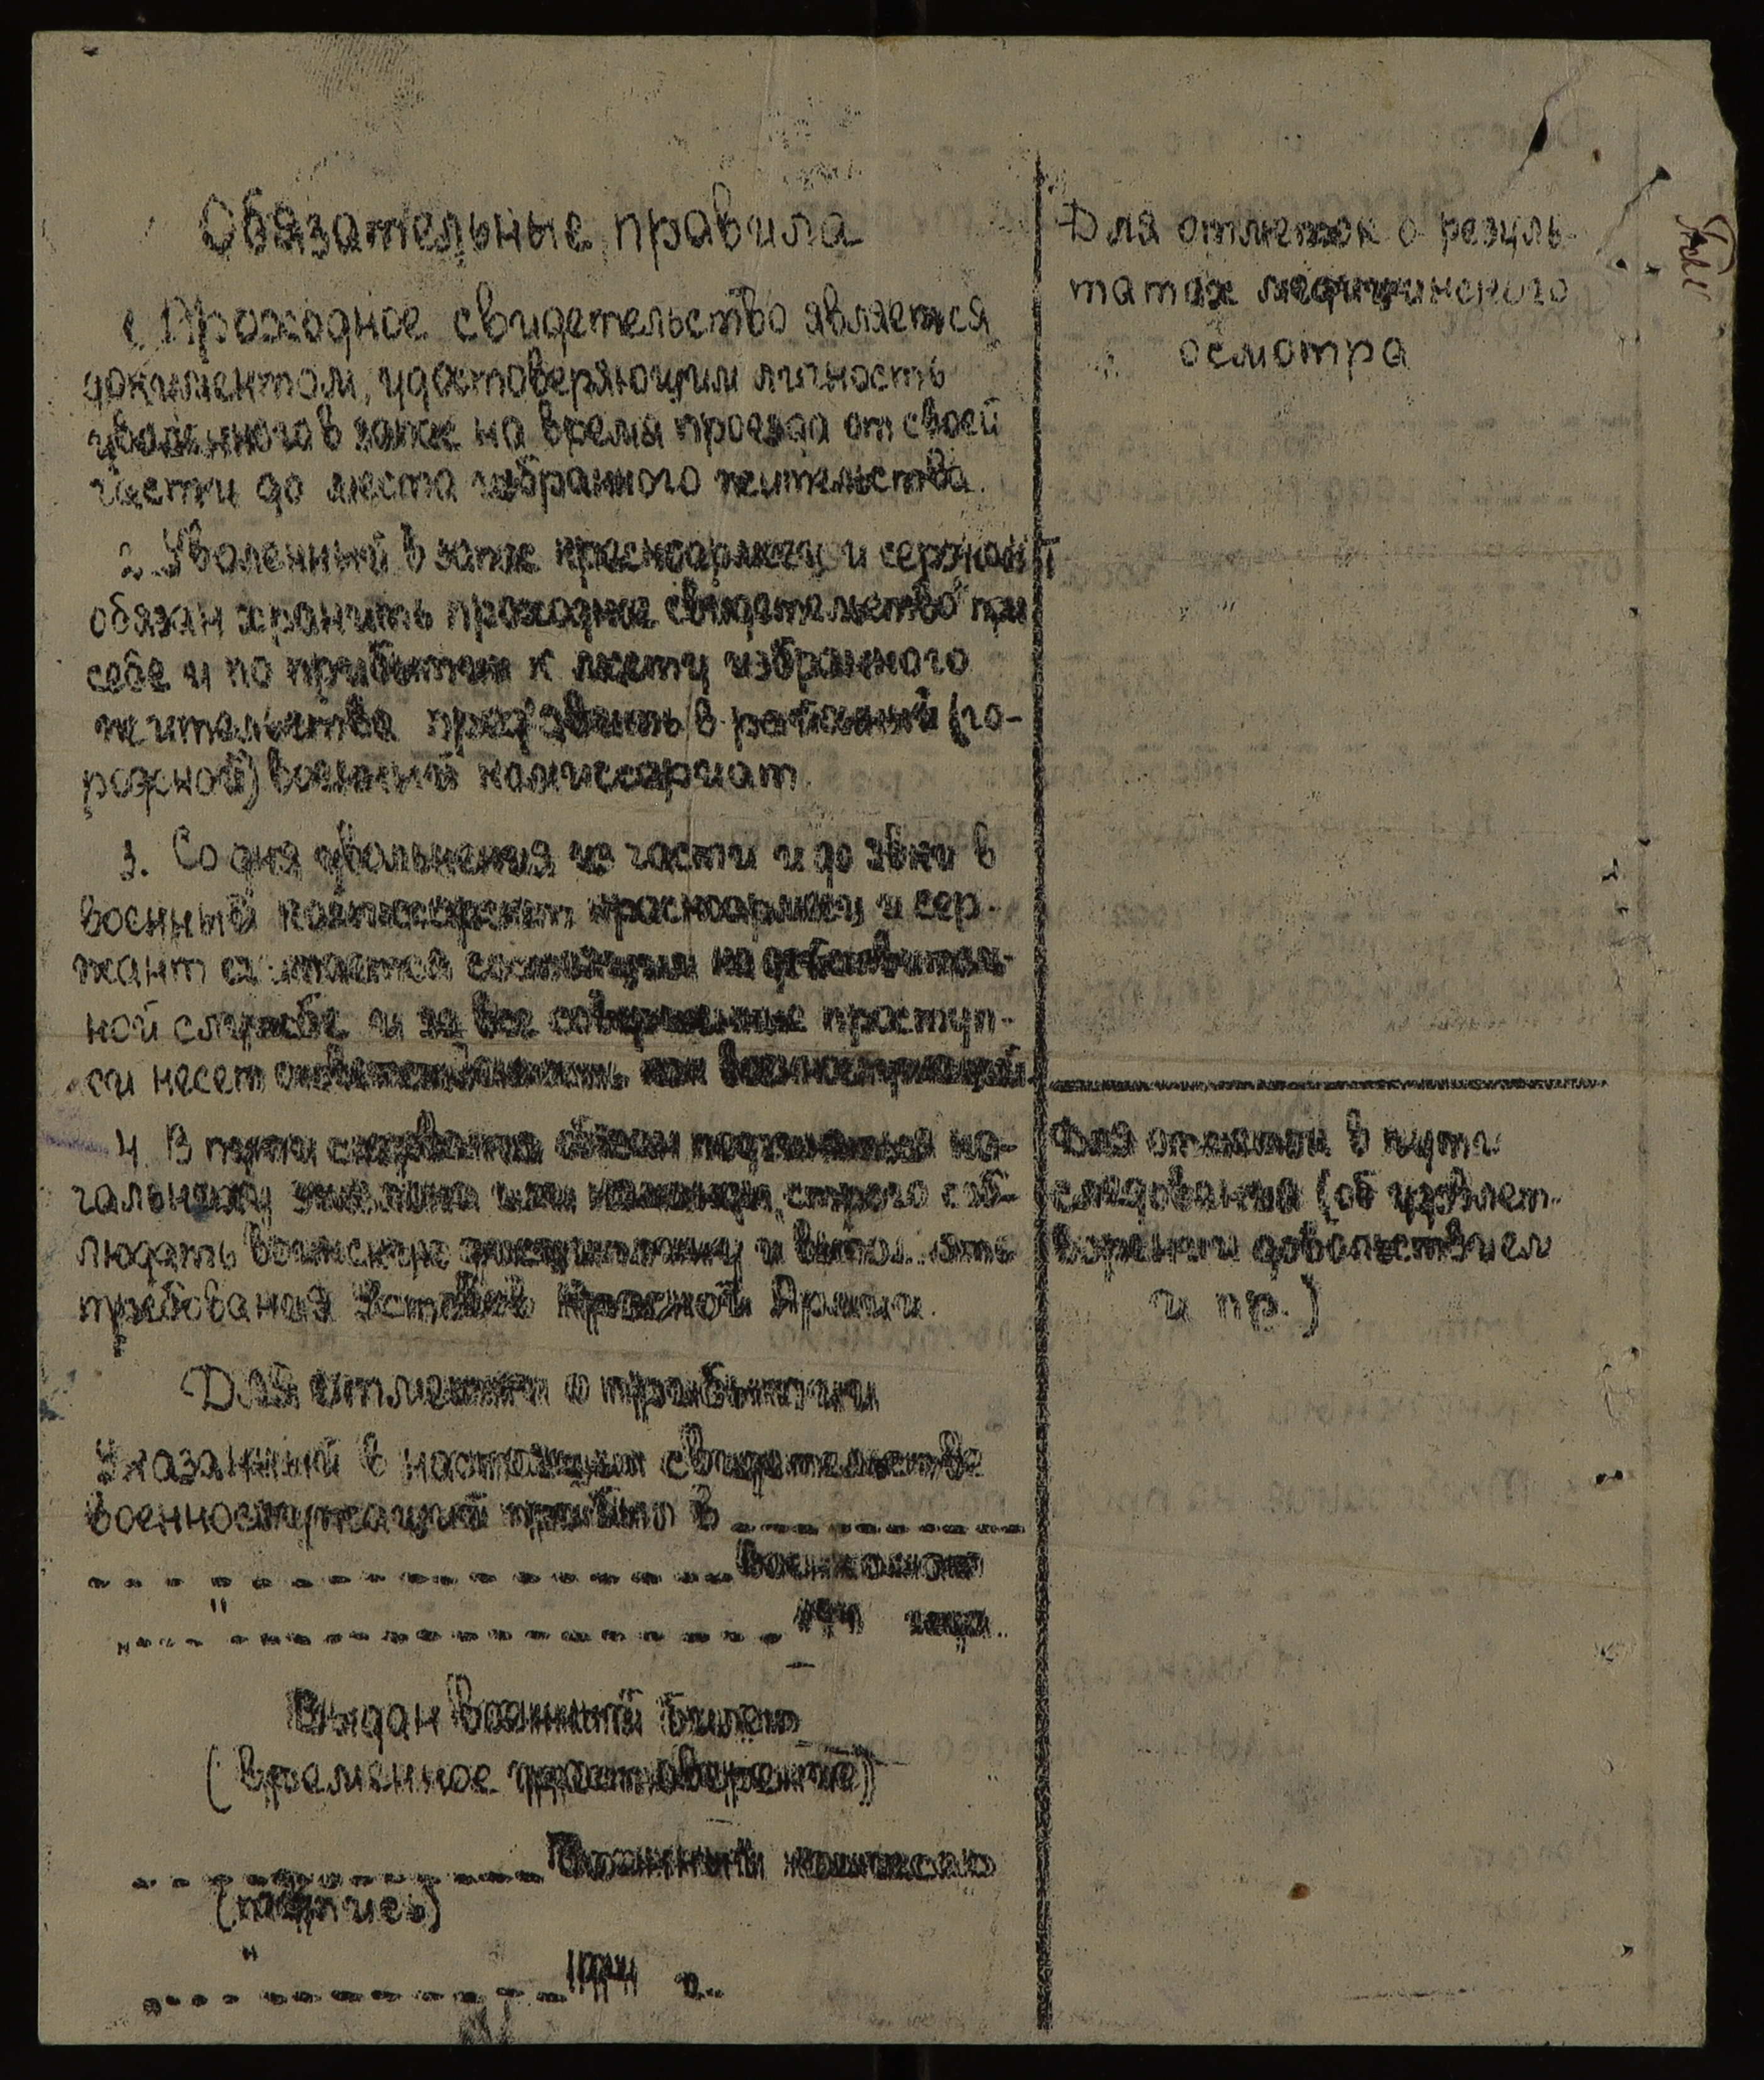 Обязательные правила
1. Проходное свидетельство является
документом, удостоверяющим личность
уволенного в запас на время проезда от своей
части до места избранного жительства.
2. Уволенный в запас красноармеец и сержант
обязан хранить проходное свидетельство при
себе и по прибытии к месту избранного
жительства пред'явить в районный (го-
родской) военный комиссариат.
3. Со дня увольнения из части и до явки в
военный комиссариат красноармеец и сер-
жант считается состоящим на действитель-
ной службе и за все совершенные проступ-
ки несет ответственность как военнослужащий
4. В пути следования обязан подчиняться на-
чальнику эшелона или команды, строго соб-
людать воинскую дисциплину и выпол..ять
требования Уставов Красной Армии.
Для отметки о прибытии
Указанный в настоящем свидетельстве
военнослужащий прибыл в
военкомат
" 194 года.
Выдан военный билет
(временное удостоверение)
Военный комиссар
(подпись)
" 1944 г.
Для отметок о резуль-
татах медицинского
осмотра
Для отметок в пути
следования (об удовлет-
ворении довольствием
и пр.)